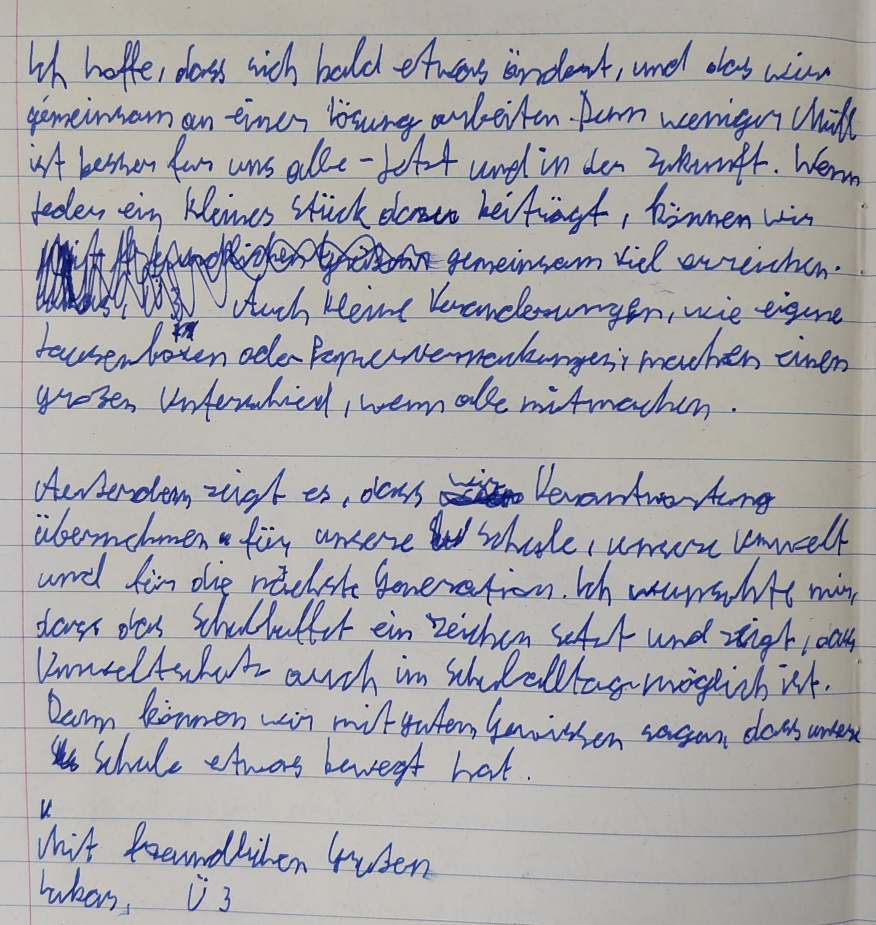 Ich hoffe, dass sich bald etwas ändert, und das wir
gemeinsam an einer lösung arbeiten. Denn weniger Müll
ist besser für uns alle - Jetzt und in der Zukunft. Wenn
jeder ein kleines Stück dazu beiträgt, können wir
gemeinsam viel erreichen.
Auch kleine Veränderungen, wie eigene
Jausenboxen oder Papierverpackungen, machen einen
großen Unterschied, wenn alle mitmachen.
Außerdem zeigt es, dass wir Verantwortung
übernehmen für unsere Schule, unsere Umwelt
und für die nächste Generation. Ich wünschte mir,
dass das Schulbuffet ein zeichen setzt und zeigt, dass
Umweltschutz auch im Schulalltag möglich ist.
Dann können wir mit gutem Gewissen sagen, dass unsere
Schule etwas bewegt hat.
Mit freundlichen Grüßen
Lukas, Ü3